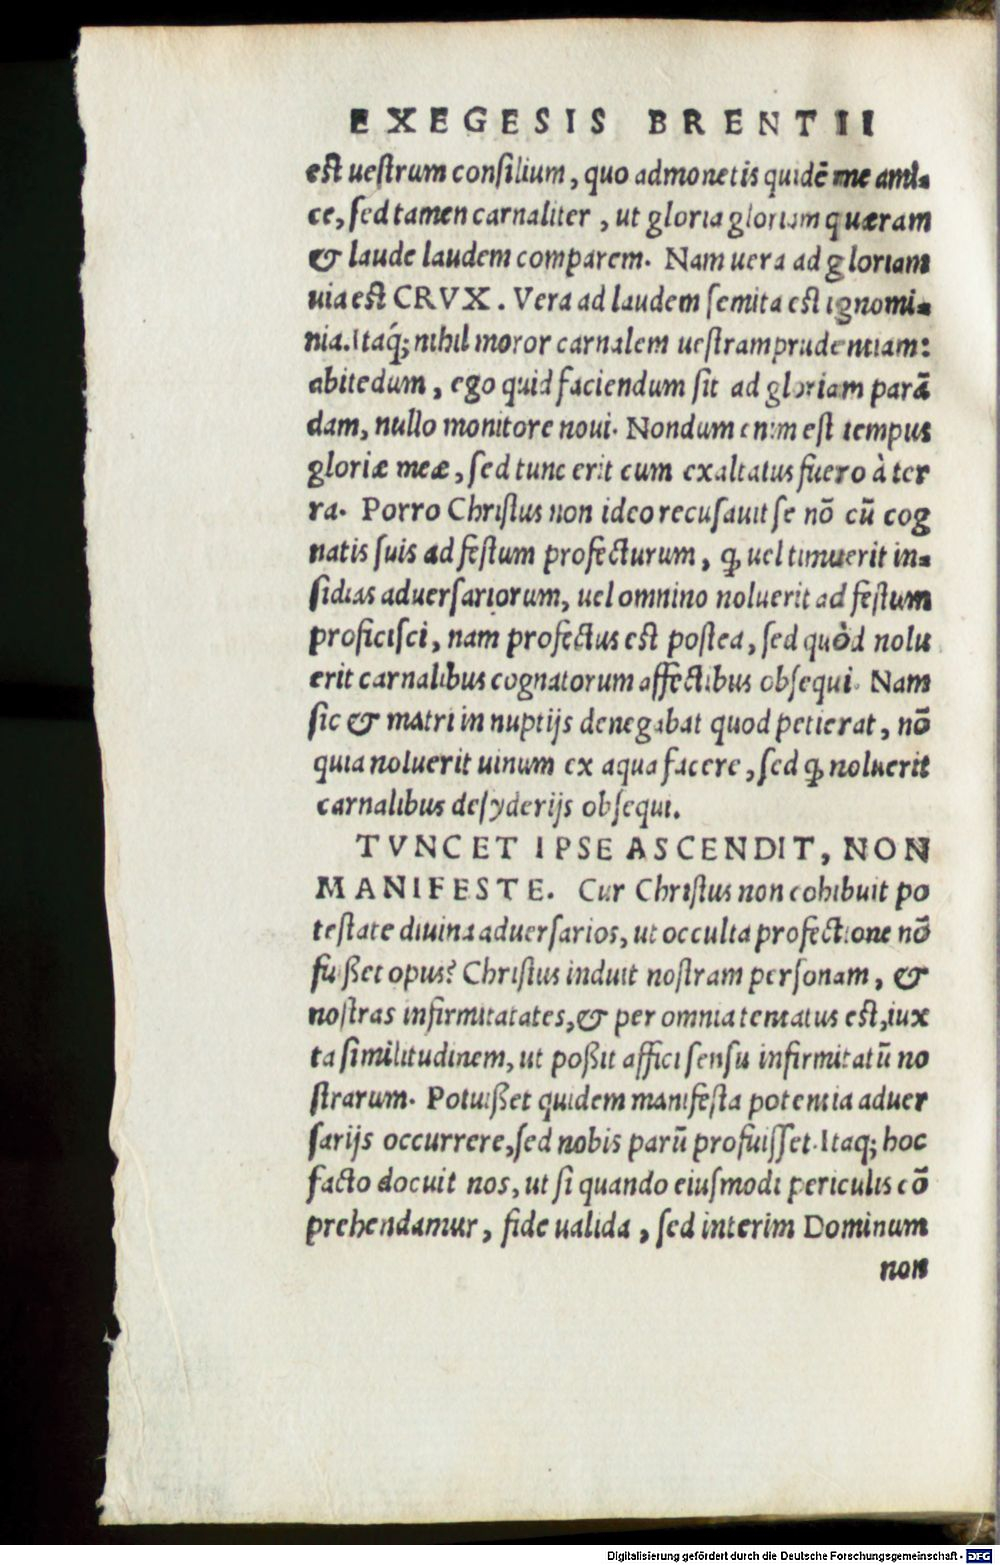 EXEGESIS BRENTII
est uestrum consilium, quo admonetis quidẽ me ami-
ce, sed tamen carnaliter, ut gloria gloriam quæram
& laude laudem comparem. Nam uera ad gloriam
uia est CRVX. Vera ad laudem semita est ignomi-
nia. Itaq́; nihil moror carnalem uestram prudentiam:
abitedum, ego quid faciendum sit ad gloriam parã
dam, nullo monitore noui. Nondum enim est tempus
gloriæ meæ, sed tunc erit cum exaltatus fuero à ter
ra. Porro Christus non ideo recusauit se nõ cũ cog
natis suis ad festum profecturum, ꝙ uel timuerit in-
sidias aduersariorum, uel omnino noluerit ad festum
proficisci, nam profectus est postea, sed quòd nolu
erit carnalibus cognatorum affectibus obsequi. Nam
sic & matri in nuptijs denegabat quod petierat, nõ
quia noluerit uinum ex aqua facere, sed ꝙ noluerit
carnalibus desyderijs obsequi.
TVNC ET IPSE ASCENDIT, NON
MANIFESTE. Cur Christus non cohibuit po
testate diuina aduersarios, ut occulta profectione nõ
fuißet opus? Christus induit nostram personam, &
nostras infirmitatates, & per omnia tentatus est, iux
ta similitudinem, ut poßit affici sensu infirmitatũ no
strarum. Potuißet quidem manifesta potentia aduer
sarijs occurrere, sed nobis parũ profuisset. Itaq; hoc
facto docuit nos, ut si quando eiusmodi periculis cõ
prehendamur, fide ualida, sed interim Dominum
non
Digitalisierung gefördert durch die Deutsche Forschungsgemeinschaft - DFG